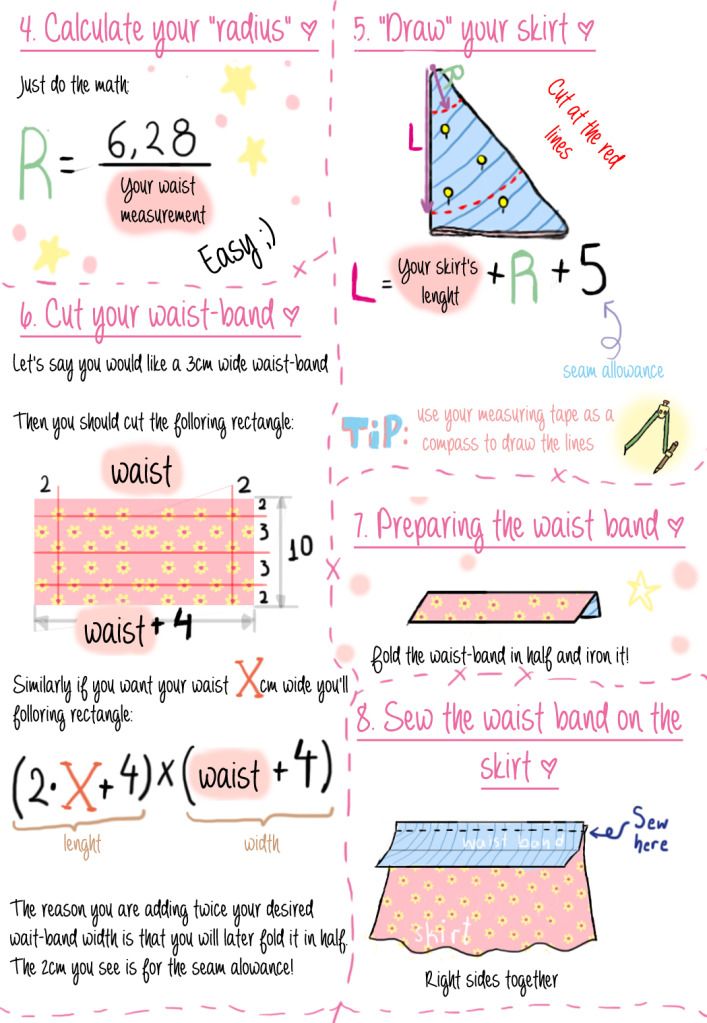 4. Calculate your "radius" ♡
Just do the math:
R = 6,28
Your waist
measurement
Easy ;)
5. "Draw" your skirt ♡
R
L
Cut at the red
lines
L = Your skirt's
lenght + R + 5
seam allowance
TiP: use your measuring tape as a
compass to draw the lines
6. Cut your waist-band ♡
Let's say you would like a 3cm wide waist-band
Then you should cut the folloring rectangle:
waist
2 2
2
3
3
2
10
waist + 4
Similarly if you want your waist X cm wide you'll
folloring rectangle:
(2·X+4) x (waist + 4)
lenght width
The reason you are adding twice your desired
wait-band width is that you will later fold it in half.
The 2cm you see is for the seam alowance!
7. Preparing the waist band ♡
fold the waist-band in half and iron it!
8. Sew the waist band on the
skirt ♡
Sew
here
waist band
skirt
Right sides together